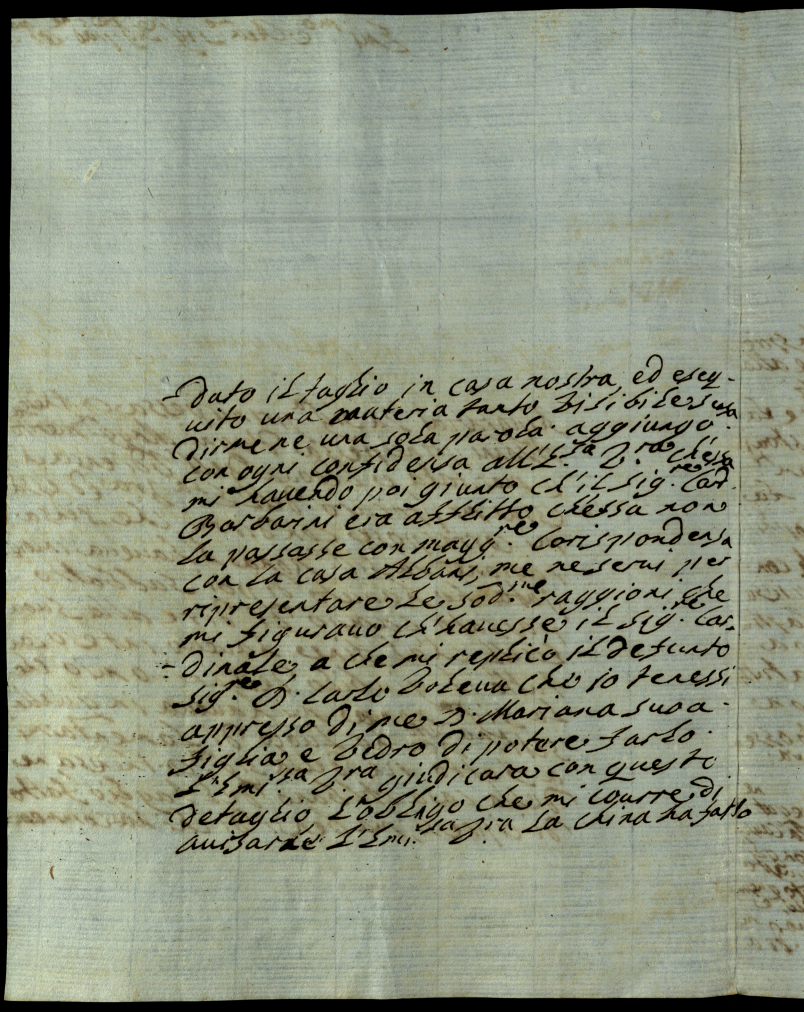 - dato il taglio in casa nostra, ed eseq-
uito una materia tanto visibile senza
dirmene una sola parola. aggiungo
con ogni confidensa all'E.za V.ra ch'essa
mi havendo poi giunto ch'il Sig.re Card.
Barbarini era afflitto ch'essa non
la passasse con magg.re Corispondensa
con la casa Albani, me ne servi per
ripresentare le sod.me raggioni che
mi figuravo ch'havesse il Sig.re Car-
- dinale a che mi replicò il defunto
Sig.re D. Carlo voleva che io tenessi
appresso di me D. Mariana sua
figlia e vedro di potere farlo.
L'Emi.za V.ra giudicara con questo
detaglio, l'obligo che mi courre di
avisarne l'Emi.za V.ra la china ha fatto